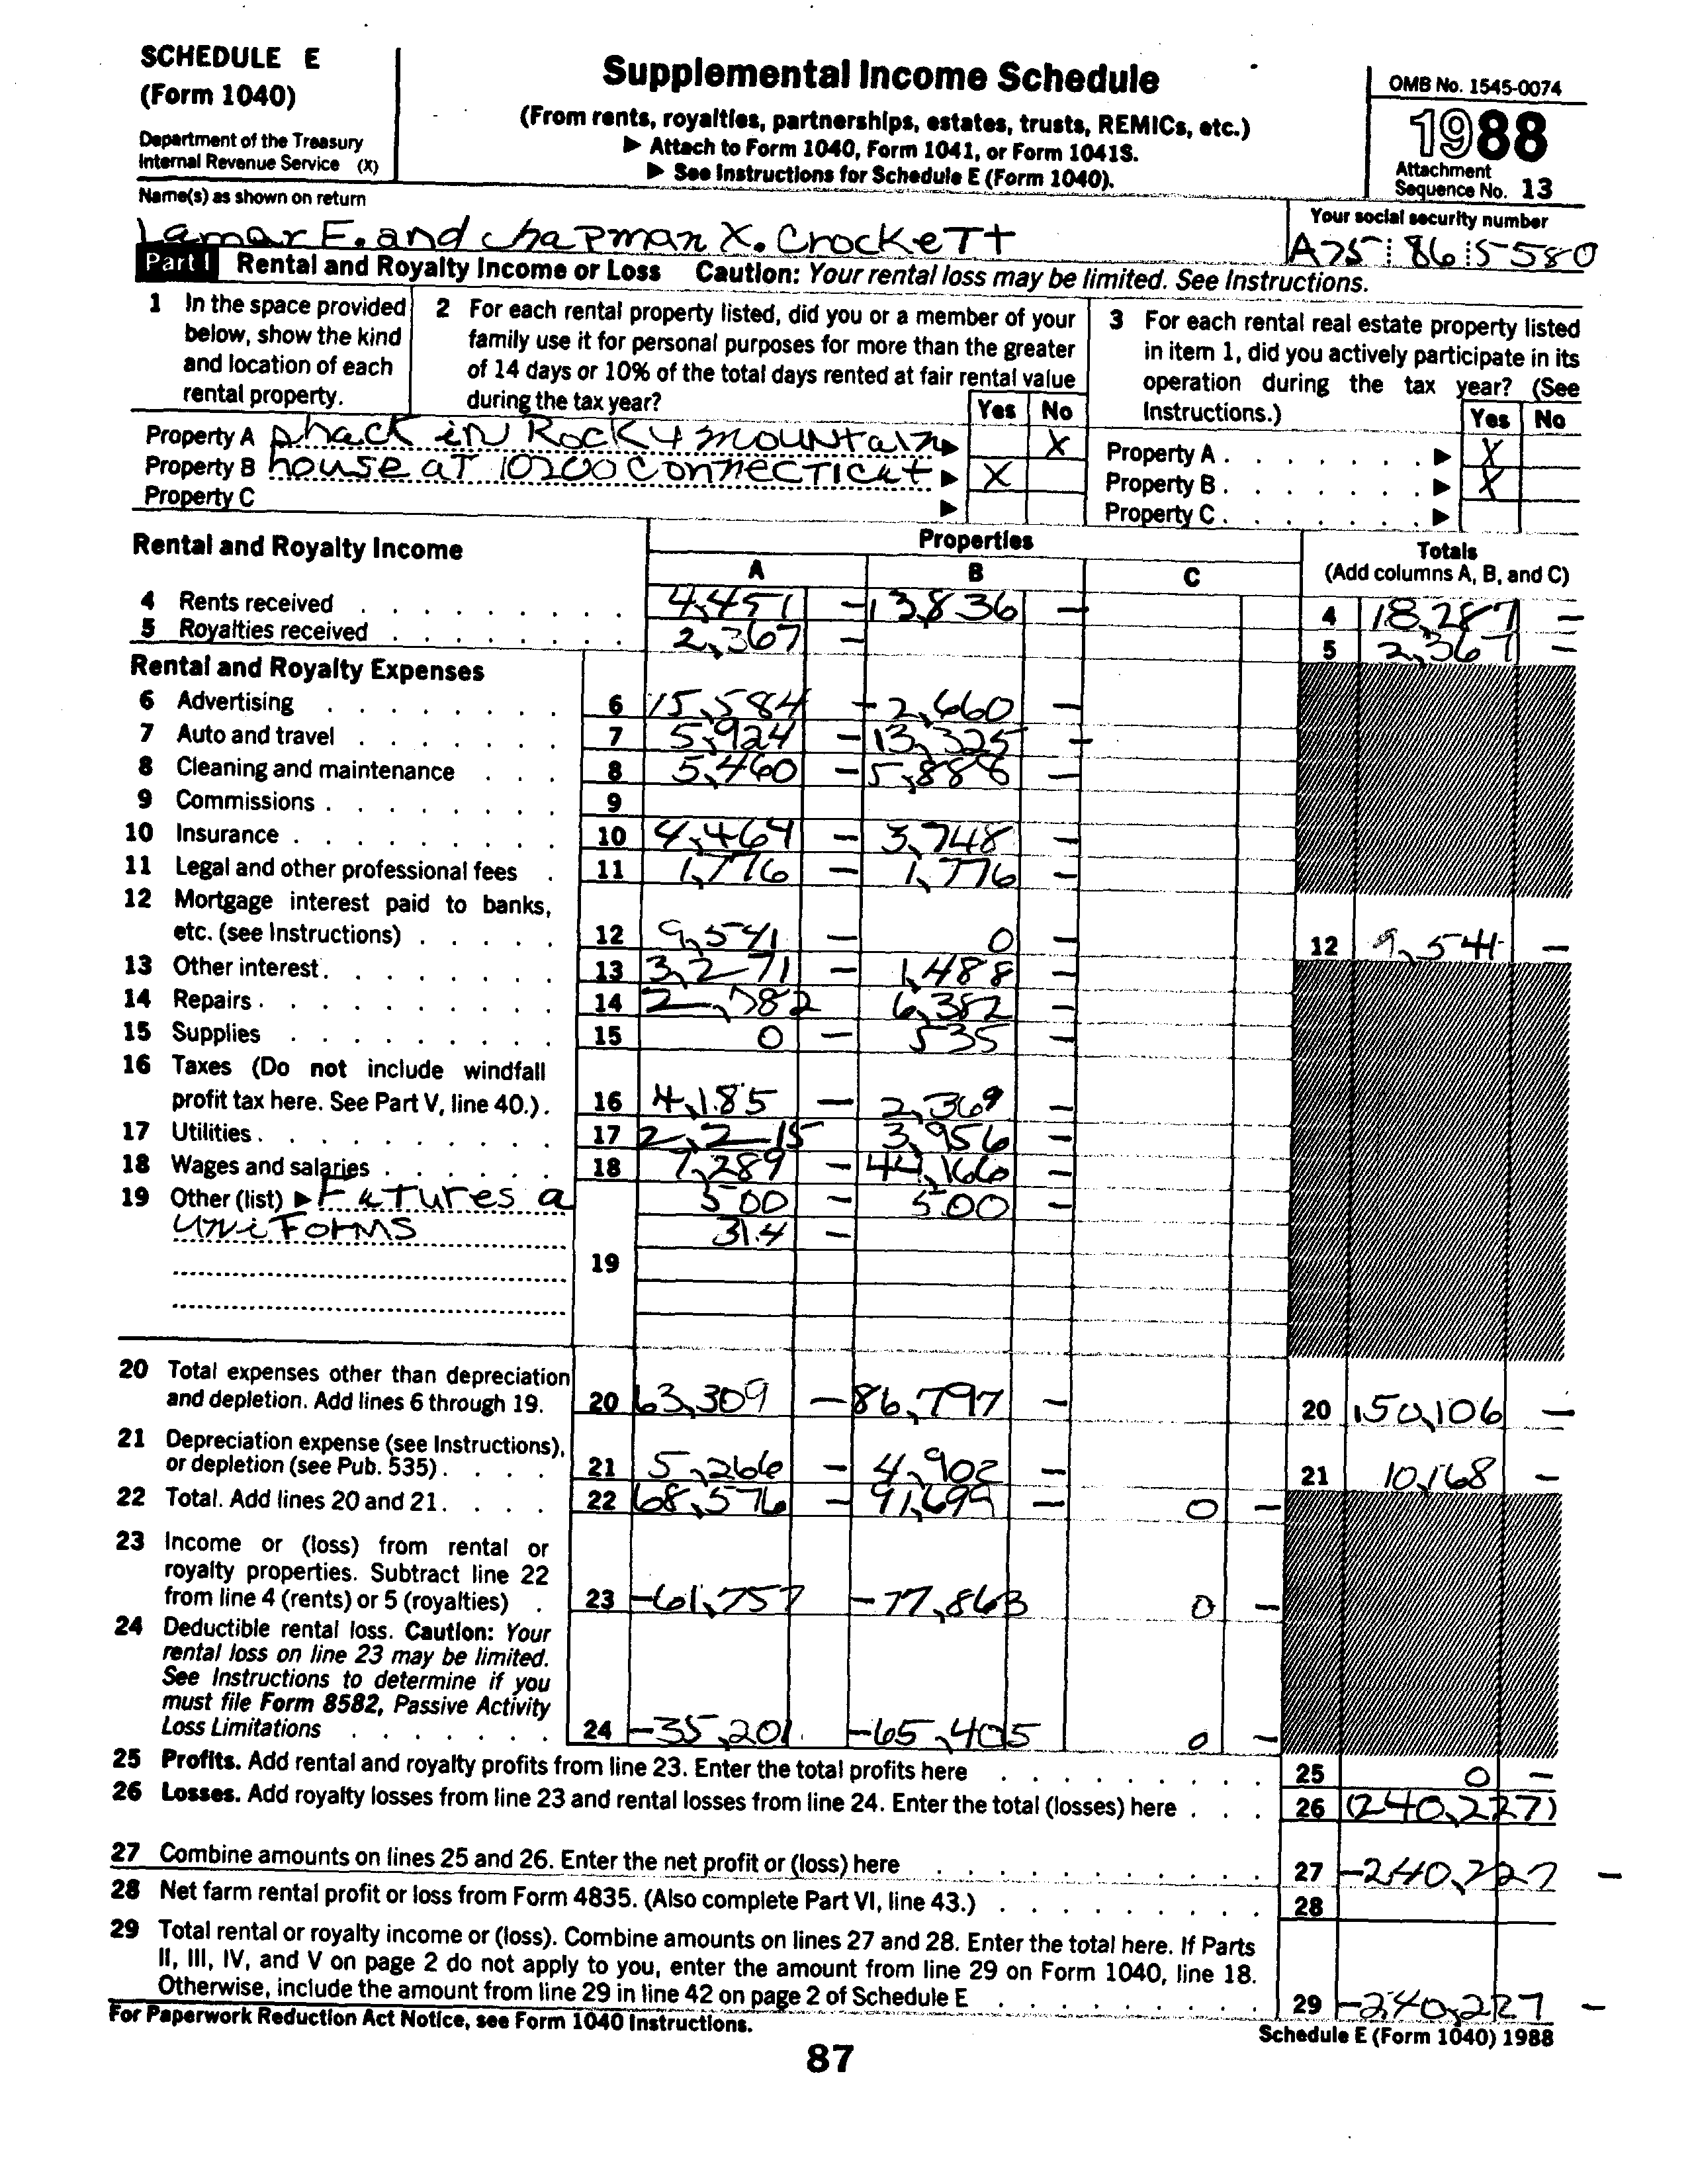 SCHEDULE E
(Form 1040)
Department of the Treasury
Internal Revenue Service (X)
Supplemental Income Schedule
(From rents, royalties, partnerships, estates, trusts, REMICs, etc.)
▶ Attach to Form 1040, Form 1041, or Form 1041S.
▶ See Instructions for Schedule E (Form 1040).
OMB No. 1545-0074
1988
Attachment
Sequence No. 13
Name(s) as shown on return
Lamar E. and Chapman X. Crockett
Your social security number
A75 86 5580
Part I Rental and Royalty Income or Loss Caution: Your rental loss may be limited. See Instructions.
1 In the space provided
below, show the kind
and location of each
rental property.
2 For each rental property listed, did you or a member of your
family use it for personal purposes for more than the greater
of 14 days or 10% of the total days rented at fair rental value
during the tax year?
Yes No
3 For each rental real estate property listed
in item 1, did you actively participate in its
operation during the tax year? (See
Instructions.)
Yes No
Property A shack in Rocky mountain ▶ X
Property B house at 10200 Connecticut ▶ X
Property C ▶
Property A . . . . . . . ▶ X
Property B . . . . . . . ▶ X
Property C . . . . . . . ▶
Rental and Royalty Income
Properties
A B C
Totals
(Add columns A, B, and C)
4 Rents received 4,451 – 13,836 – 4 18,287 –
5 Royalties received 2,367 – 5 2,367 –
Rental and Royalty Expenses
6 Advertising 6 15,584 – 2,660 –
7 Auto and travel 7 5,924 – 13,325 –
8 Cleaning and maintenance 8 5,460 – 5,888 –
9 Commissions 9
10 Insurance 10 4,464 – 3,748 –
11 Legal and other professional fees 11 1,776 – 1,776 –
12 Mortgage interest paid to banks,
etc. (see Instructions) 12 9,541 – 0 – 12 9,541 –
13 Other interest 13 3,271 – 1,488 –
14 Repairs 14 6,382 –
15 Supplies 15 0 – 535 –
16 Taxes (Do not include windfall
profit tax here. See Part V, line 40.) 16 4,185 – 2,369 –
17 Utilities 17 2,215 3,956 –
18 Wages and salaries 18 – 44,166 –
19 Other (list) ▶ 500 – 500 –
uniforms 314 –
19
20 Total expenses other than depreciation
and depletion. Add lines 6 through 19. 20 63,309 – 86,797 – 20 150,106 –
21 Depreciation expense (see Instructions),
or depletion (see Pub. 535) 21 5,266 – 4,902 – 21 10,168 –
22 Total. Add lines 20 and 21 22 68,576 – 91,699 – 0 –
23 Income or (loss) from rental or
royalty properties. Subtract line 22
from line 4 (rents) or 5 (royalties) 23 -61,757 -77,863 0 –
24 Deductible rental loss. Caution: Your
rental loss on line 23 may be limited.
See Instructions to determine if you
must file Form 8582, Passive Activity
Loss Limitations 24 -35,201 -65,405 0 –
25 Profits. Add rental and royalty profits from line 23. Enter the total profits here 25 0 –
26 Losses. Add royalty losses from line 23 and rental losses from line 24. Enter the total (losses) here 26 (240,227)
27 Combine amounts on lines 25 and 26. Enter the net profit or (loss) here 27 -240,227 –
28 Net farm rental profit or loss from Form 4835. (Also complete Part VI, line 43.) 28
29 Total rental or royalty income or (loss). Combine amounts on lines 27 and 28. Enter the total here. If Parts
II, III, IV, and V on page 2 do not apply to you, enter the amount from line 29 on Form 1040, line 18.
Otherwise, include the amount from line 29 in line 42 on page 2 of Schedule E 29 -240,227 –
For Paperwork Reduction Act Notice, see Form 1040 Instructions.
Schedule E (Form 1040) 1988
87